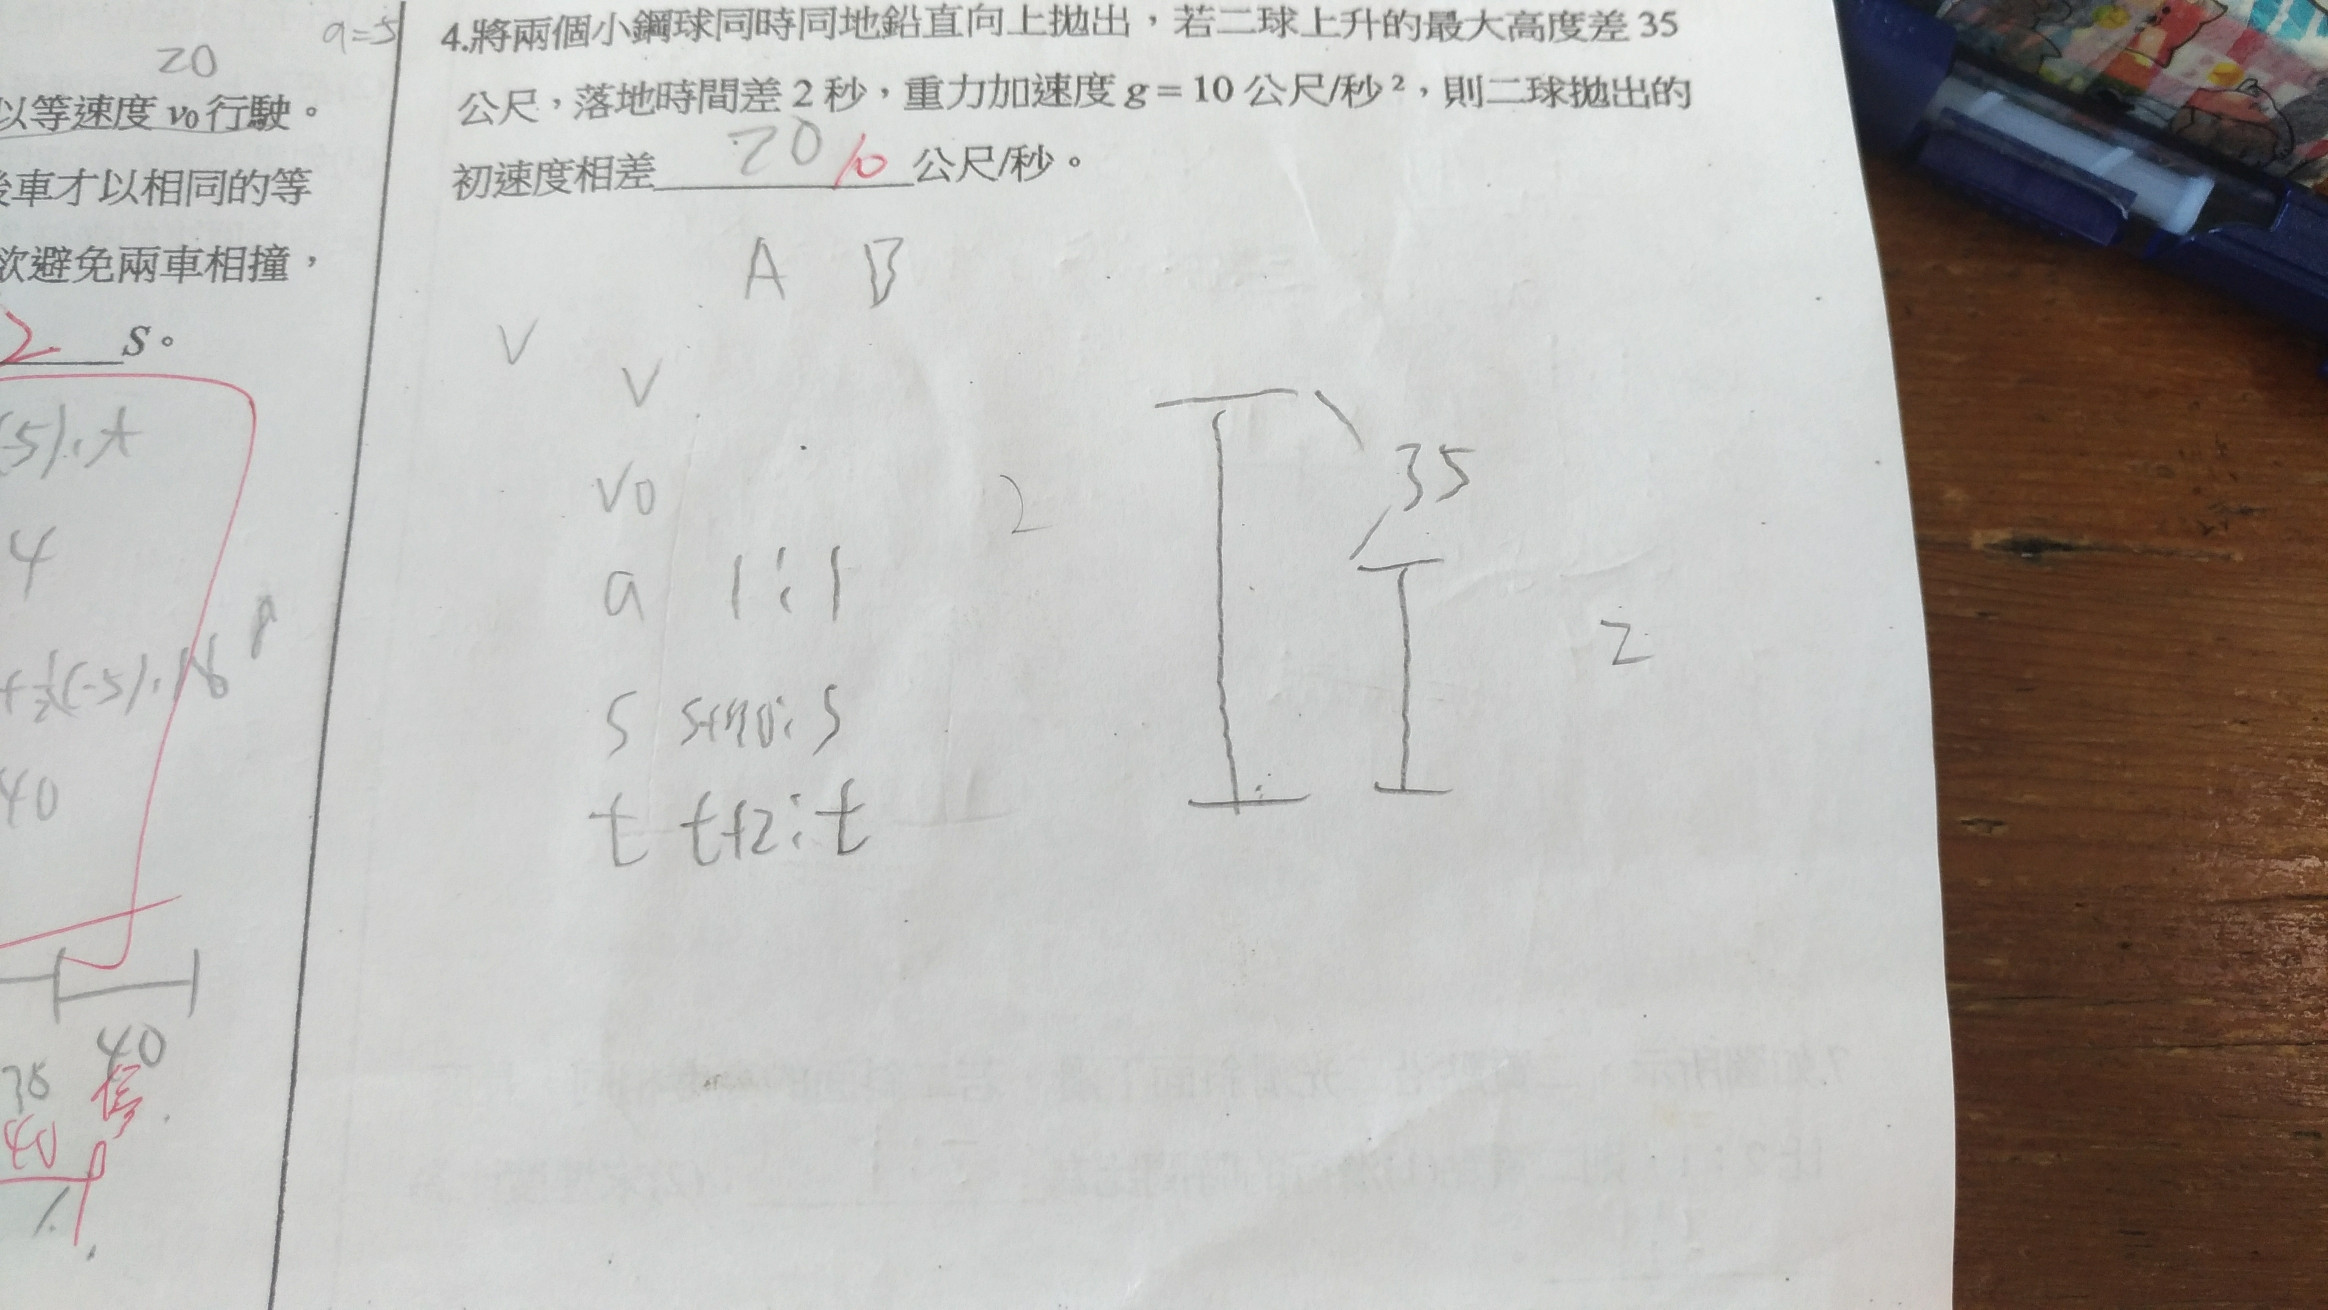 20
a=5
以等速度 v₀ 行駛。
後車才以相同的等
欲避免兩車相撞，
2 S。
(-5)·t
4
+½(-5)·16
40
40
40
4.將兩個小鋼球同時同地鉛直向上拋出，若二球上升的最大高度差 35
公尺，落地時間差 2 秒，重力加速度 g = 10 公尺/秒²，則二球拋出的
初速度相差 20 10 公尺/秒。
A B
V
V
V0
a 1:1
S :S
t t+2:t
2
35
2